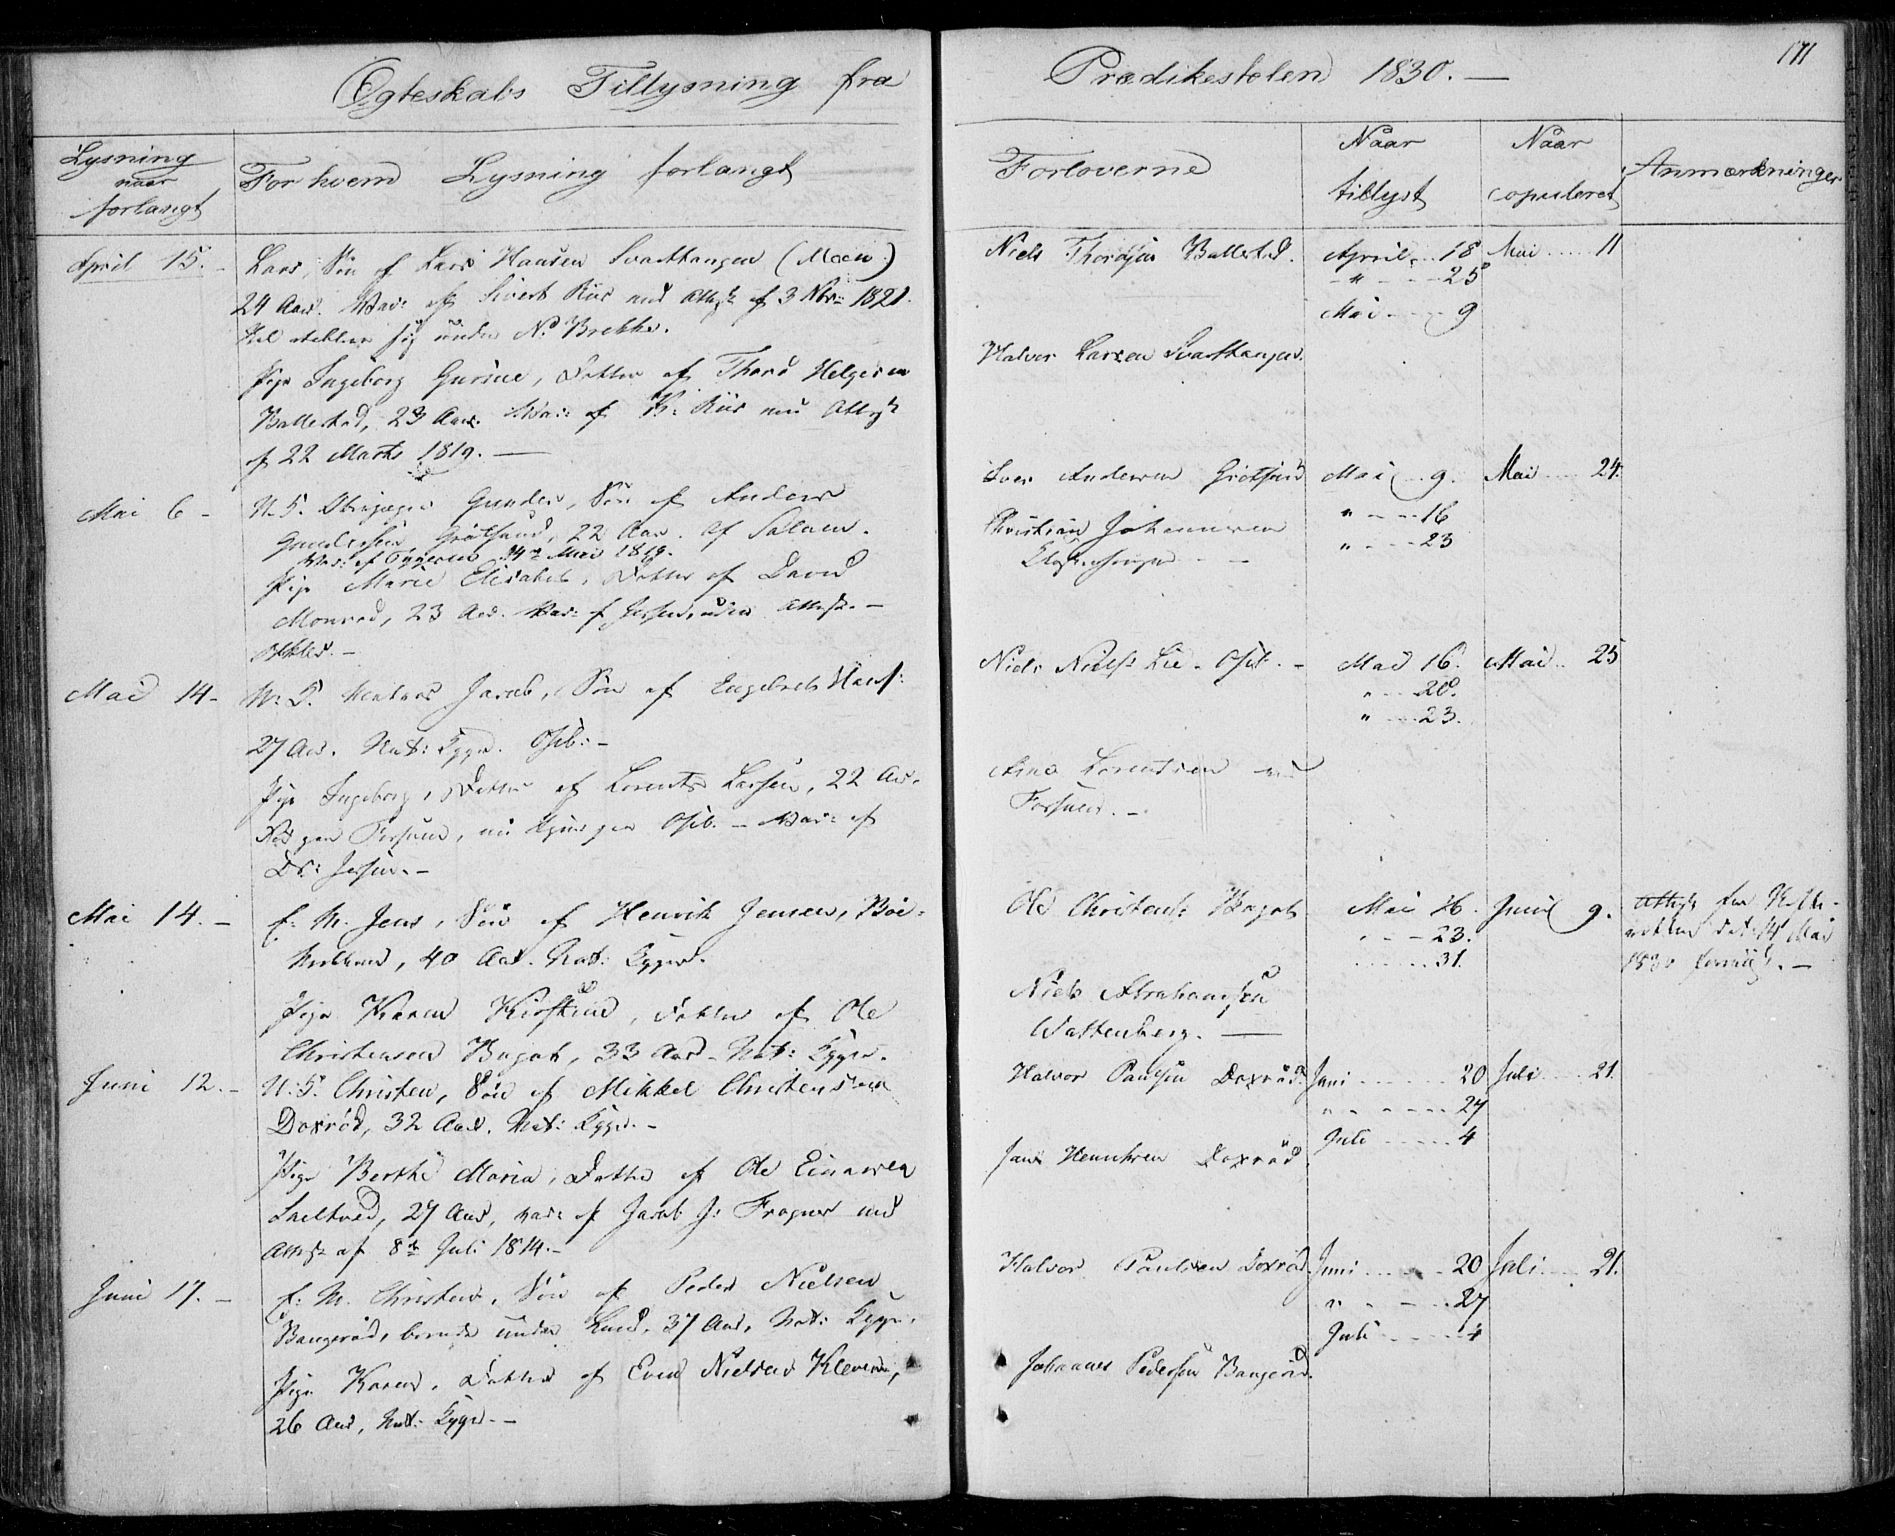 Ægteskabs Tillysning fra Prædikestolen 1830. —
171
Lysning naar forlangt
For hvem Lysning forlangt
Forloverne
Naar tillyst
Naar copuleret
Anmærkninger
April 15. -
Lars, Søn af Lars Hansen Svarttangen (Moen)
24 Aar. Vac: af Sivert Riis med Attest af 3 Nbr: 1821.
under No Brekke.
Pige Ingeborg Gurine, Datter af Thord Helgesen
Ballestad, 23 Aar. Vac: af H: Riis med Attest
af 22 Marts 1819. —
Niels Thordsen Ballestad.
Halvor Larsen Svarttangen.
April 18
" 25
Mai 9
Mai 11
Mai 6 -
U. S. Gunder, Søn af Anders
Gundersen Grotsund, 22 Aar. af
Vac: af 14de Mai 1819.
Pige Marie Elisabet, Datter af David
Monrad, 23 Aar. Vac: af uden Attest. -
Iver Andersen Grotsund
Christian Johannesen
Mai 9.
" 16
" 23
Mai 24.
Mai 14 -
U. S. Jacob, Søn af Engelbret Hans:
27 Aar. Nat: Kyger. Oseb: -
Pige Ingeborg, Datter af Lorents Larsen, 22 Aar.
Oseb. - Vac: af
Dr: Jersin. -
Niels Niels: Lie. Oseb. -
Arne Lorentsen
Mai 16.
" 20.
" 23.
Mai 25
Mai 14. -
E: M. Jens, Søn af Henrik Jensen,
40 Aar. Nat: Kyger.
Pige Karen Kirstine, Datter af Ole
Christensen Bugot, 33 Aar. Nat: Kyger.
Ole Christens: Bugot
Niels Abrahamsen
Wattenberg. —
Mai 16.
23.
31.
Juni 9.
Attest fra
dat: 14 Mai
1830 -
Juni 12. -
U. S. Christen, Søn af Mikkel Christensen
Doxrød, 32 Aar. Nat: Kyger. -
Pige Berthe Maria, Datter af Ole Einarsen
27 Aar, vac: af Jacob J: Frogner med
Attest af 8de Juli 1814. -
Halvor Paulsen Doxrød.
Jens Henriksen Doxrød.
Juni 20
" 27
Juli 4
Juli 21.
Juni 17. -
E: M. Christen, Søn af Peder Nielsen
Bangerød, boende under Lund, 37 Aar, Nat: Kyger.
Pige Karen, Datter af Even Nielsen Kleveren,
26 Aar, Nat: Kyger. -
Halvor Paulsen Doxrød.
Johannes Pedersen Bangerød.
Juni 20
" 27
Juli 4
Juli 21.